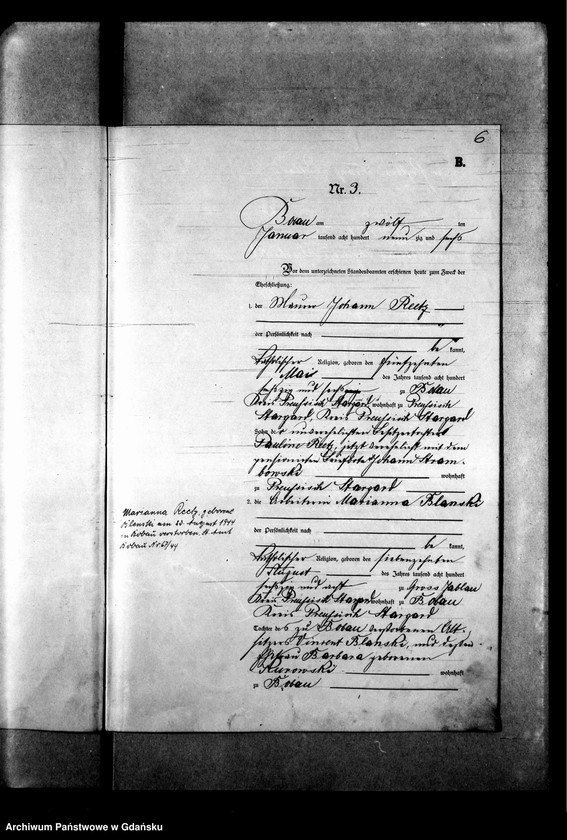 6
B.
Nr. 3.
Bobau am zwölf ten
Januar tausend acht hundert neun zig und sechs
Vor dem unterzeichneten Standesbeamten erschienen heute zum Zweck der
Eheschließung:
1. der Maurer Johann Reetz
der Persönlichkeit nach
be kannt,
katholischer Religion, geboren den fünfzehnten
Mai des Jahres tausend acht hundert
sechszig und zu Bobau
Kreis Preußisch Stargard, wohnhaft zu Preußisch
Stargard, Kreis Preußisch Stargard
Sohn der unverehelichten
Pauline Reetz, jetzt verehelicht mit dem
pensionirten Johann Stram-
bowski wohnhaft
zu Preußisch Stargard
2. die Arbeiterin Marianna Blanski
der Persönlichkeit nach
be kannt,
katholischer Religion, geboren den siebenzehnten
August des Jahres tausend acht hundert
sechszig und acht zu Gross Jablau
Kreis Preußisch Stargard, wohnhaft zu Bobau
Kreis Preußisch Stargard
Tochter des zu Bobau verstorbenen Alt-
sitzers Vincent Blanski, und dessen
Ehefrau Barbara geborenen
Kurowski wohnhaft
zu Bobau
Marianna Reetz, geborene
Blanski am 23. August 1944
in Bobau verstorben St. Amt
Bobau Nr
Archiwum Państwowe w Gdańsku